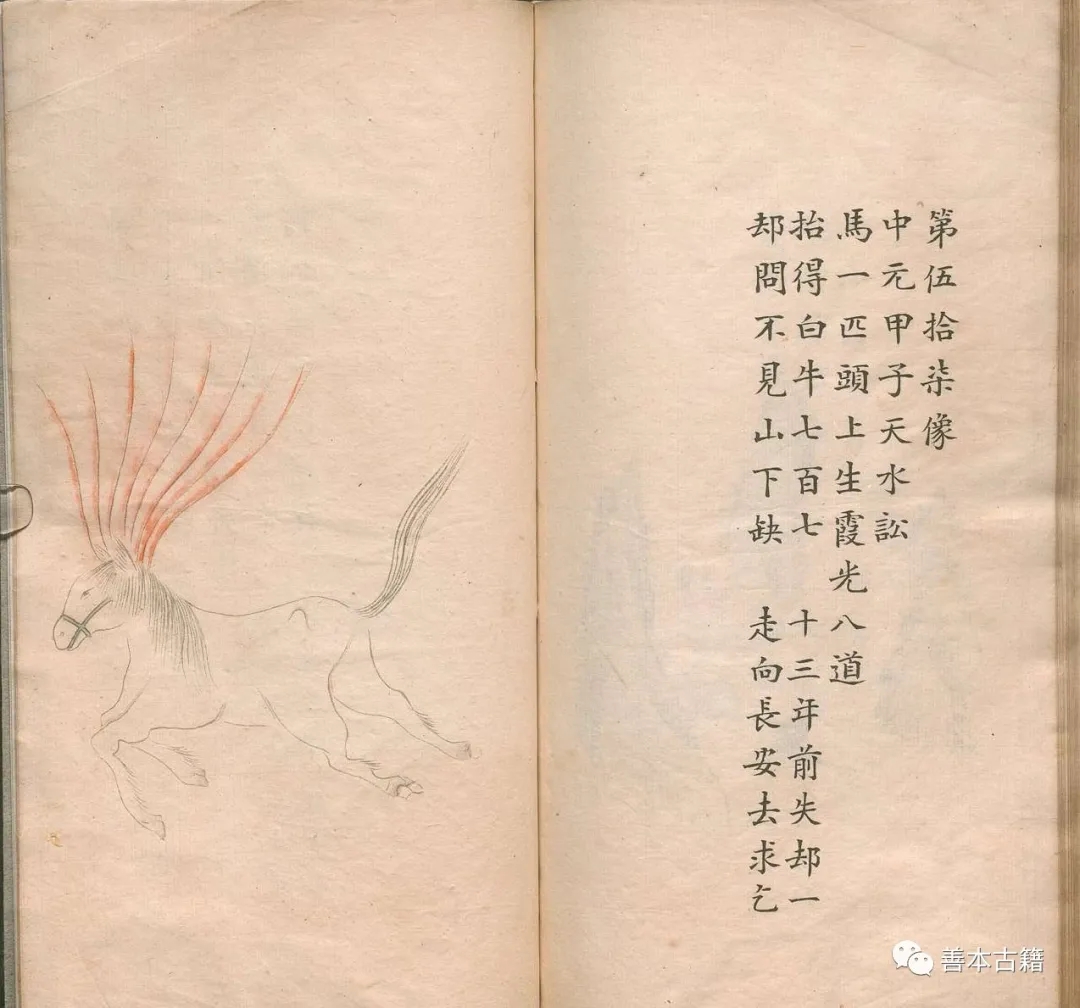 第伍拾柒像
中元甲子天水訟
馬一匹頭上生霞光八道
抬得白牛七百七 十三年前失却一
却問不見山下缺 走向長安去求乞
善本古籍